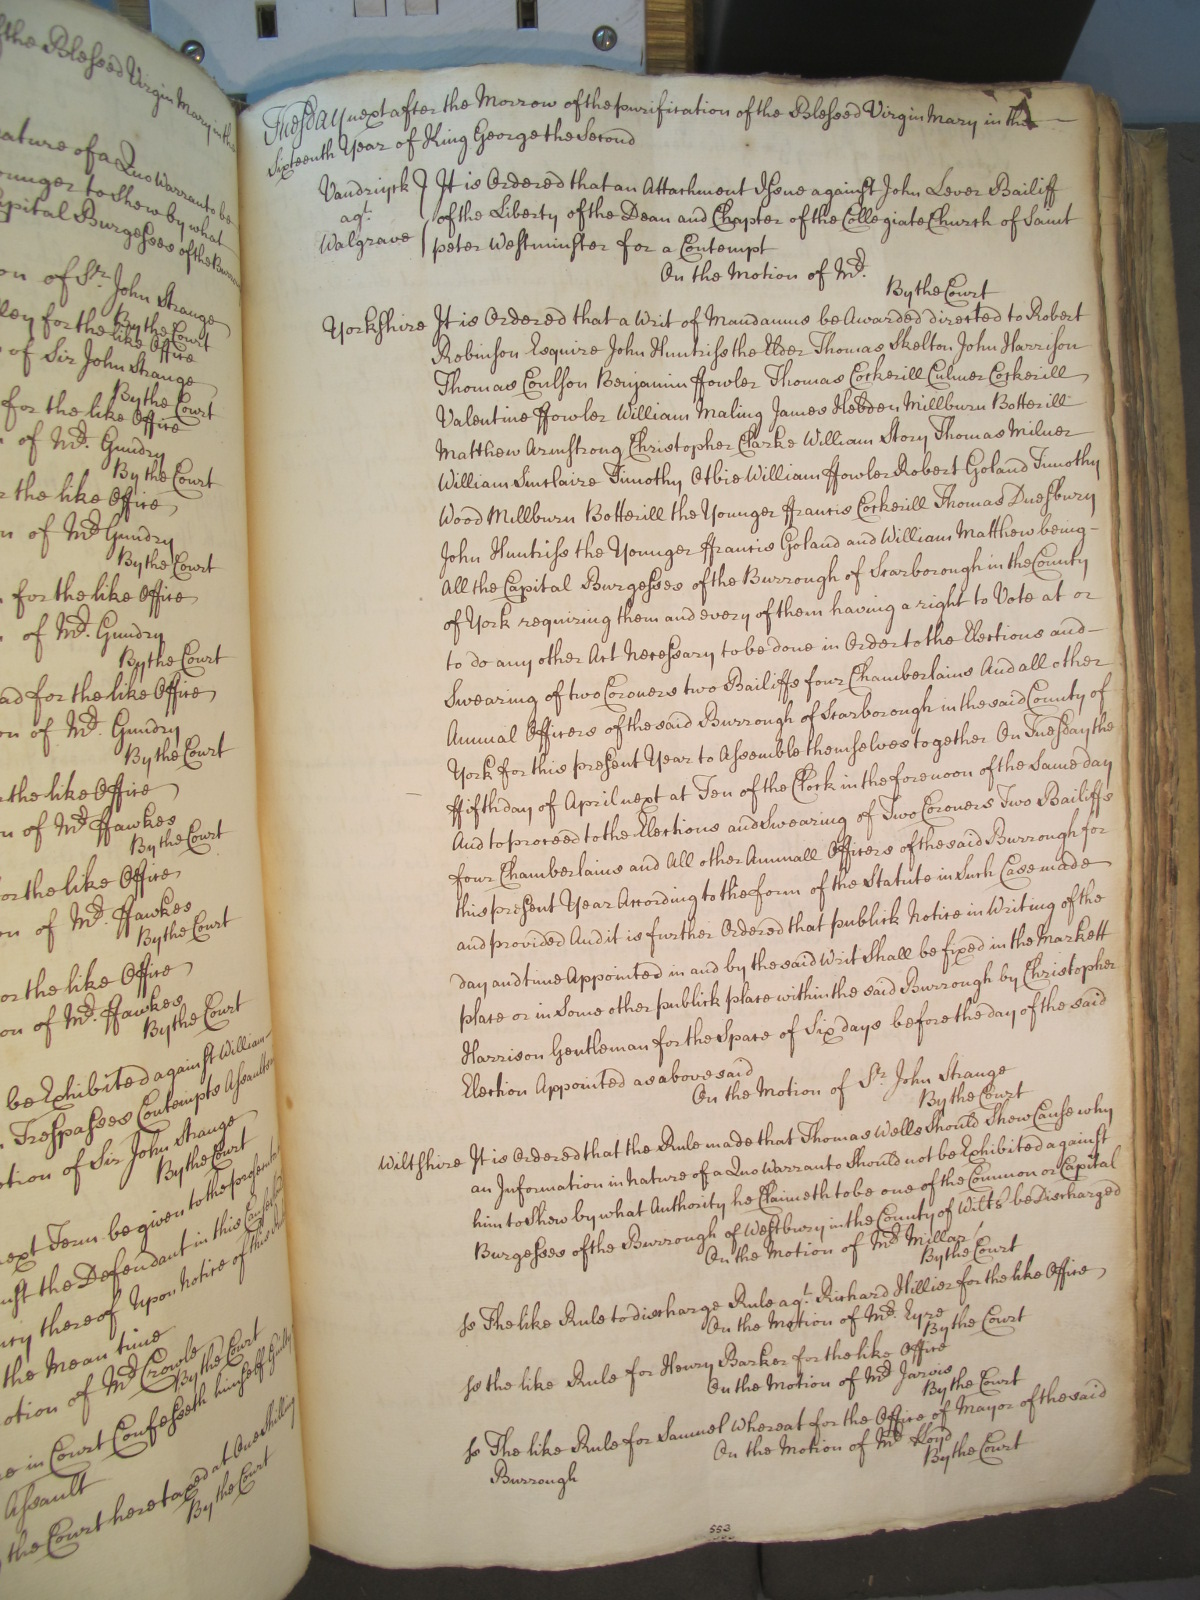 of the Blessed Virgin Mary in the
nature of a Quo Warranto be
younger to shew by what
Capital Burgesses of the Burrow
on of Sr. John Strange
By the Court
ley for the like Office
of Sir John Strange
By the Court
for the like Office
of Mr. Gundry
By the Court
the like Office
of Mr. Gundry
By the Court
for the like Office
of Mr. Gundry
By the Court
ad for the like Office
on of Mr. Gundry
By the Court
the like Office
on of Mr. Hawkes
By the Court
for the like Office
on of Mr. Hawkes
By the Court
or the like Office
on of Mr. Hawkes
By the Court
be Exhibited against William
Trespasses Contempts Assaults
otion of Sir John Strange
By the Court
next Term be given to the
the Defendant in this
thereof upon Notice of this
the mean time
otion of Mr. Crowle
By the Court
in Court Confesseth himself Guilty
Assault
the Court here taxed at One Shilling
By the Court
Tuesday next after the Morrow of the purification of the Blessed Virgin Mary in the
Sixteenth Year of King George the Second
It is Ordered that an Attachment Issue against John Lever Bailiff
agt.
of the Liberty of the Dean and Chapter of the Collegiate Church of Saint
Walgrave
peter Westminster for a Contempt
On the Motion of Mr.
By the Court
Yorkshire It is Ordered that a Writ of Mandamus be Awarded directed to Robert
Robinson Esquire John Huntriss the Elder Thomas Skelton John Harrison
Thomas Coulson Benjamin ffowler Thomas Cockerill Culmer Cockerill
Valentine ffowler William Maling James Hebden Millburn Botterill
Matthew Armstrong Christopher Clarke William Story Thomas Milner
William Sinclaire Timothy Otbie William ffowler Robert Goland Timothy
Wood Millburn Botterill the Younger ffrancis Cockerill Thomas Duesbury
John Huntriss the Younger ffrancis Goland and William Matthew being
All the Capital Burgesses of the Burrough of Scarborough in the County
of York requiring them and every of them having a right to Vote at or
to do any other Act Necessary to be done in Order to the Elections and
Swearing of two Coroners two Bailiffs four Chamberlains And all other
Annual Officers of the said Burrough of Scarborough in the said County of
York for this present Year to Assemble themselves together On Tuesday the
ffifth day of April next at Ten of the Clock in the forenoon of the Same day
And to proceed to the Elections and Swearing of Two Coroners Two Bailiffs
four Chamberlains and All other Annuall Officers of the said Burrough for
this present Year According to the form of the Statute in Such Case made
and provided And it is further Ordered that publick Notice in Writing of the
day and time Appointed in and by the said Writ Shall be fixed in the Markett
place or in Some other publick place within the said Burrough by Christopher
Harrison Gentleman for the Space of Six days before the day of the said
Election Appointed as above said
On the Motion of Sr. John Strange
By the Court
Wiltshire It is Ordered that the Rule made that Thomas Wells Should Shew Cause why
an Information in Nature of a Quo Warranto Should not be Exhibited against
him to Shew by what Authority he Claimeth to be one of the Common or Capital
Burgesses of the Burrough of Westbury in the County of Wilts be Discharged
On the Motion of Mr. Millar
By the Court
so The like Rule to discharge Rule agt. Richard Hillier for the like Office
On the Motion of Mr. Eyre
By the Court
so the like Rule for Henry Barker for the like Office
On the Motion of Mr. Jarvis
By the Court
so The like Rule for Samuel Whereat for the Office of Mayor of the said
Burrough
On the Motion of Mr. Lloyd
By the Court
553